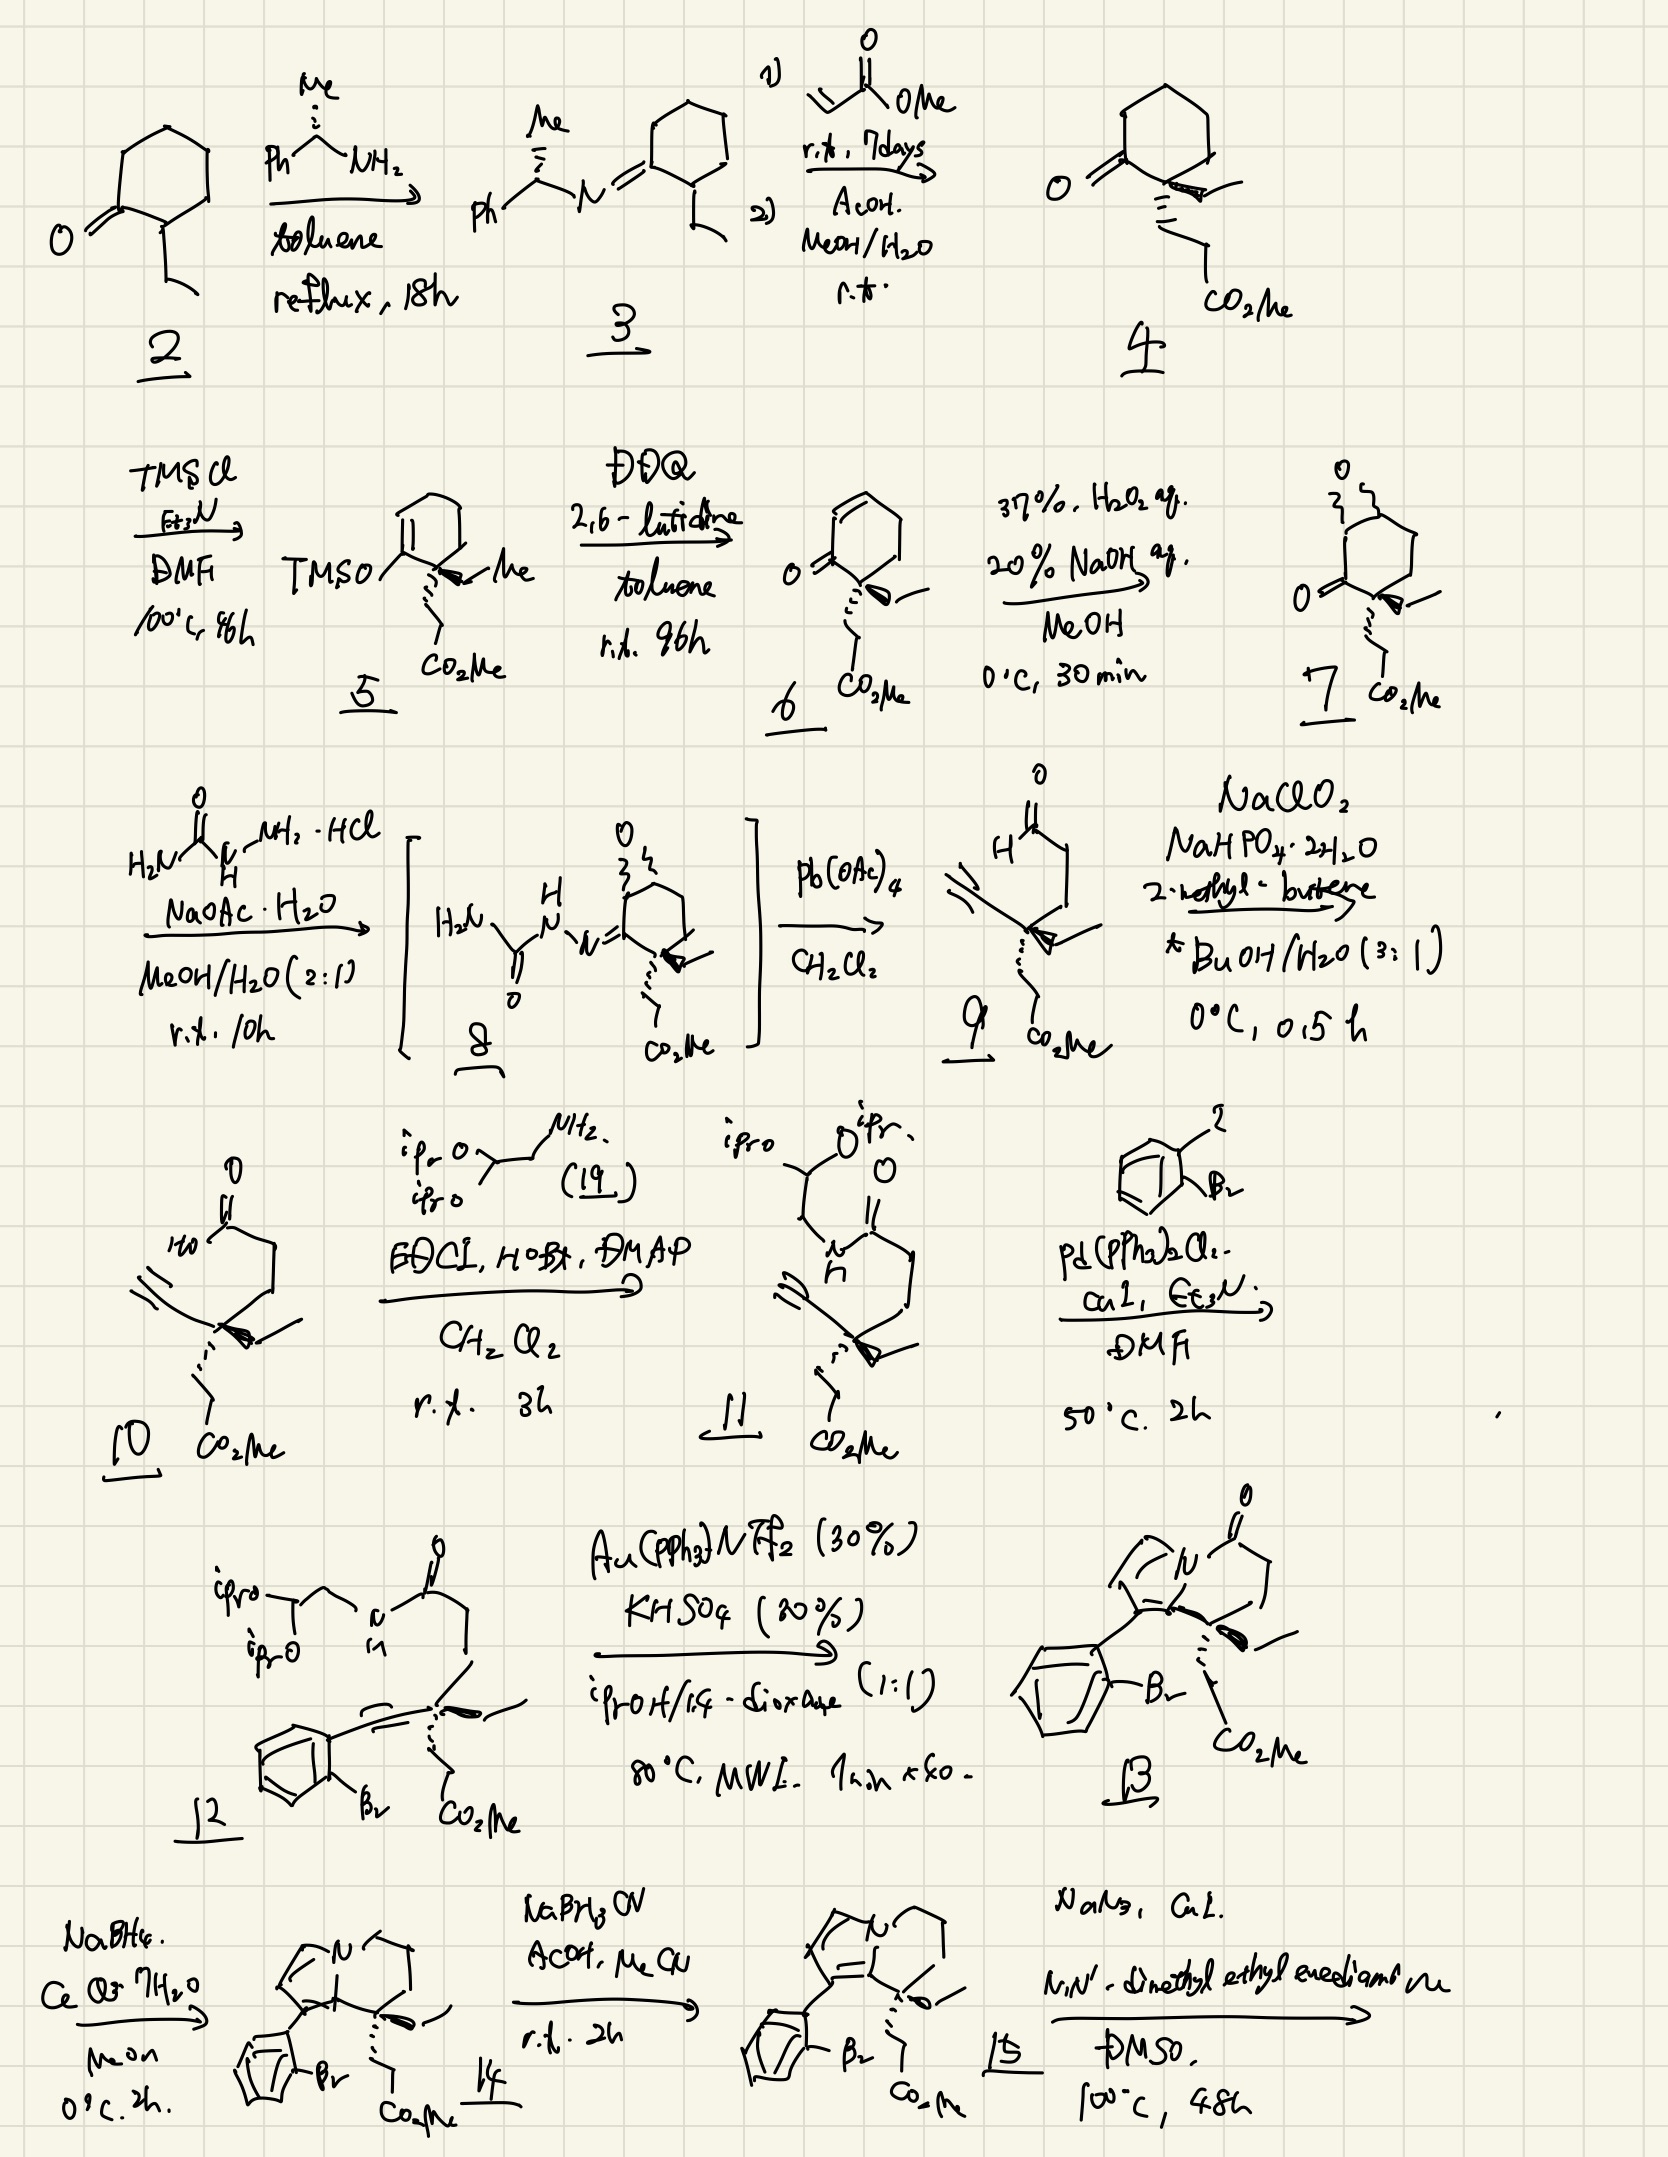 Me
Ph NH2
toluene
reflux, 18h
O
2
Me
Ph N
3
1) O
OMe
r.t. 7days
2) AcOH.
MeOH/H2O
r.t.
O
CO2Me
4
TMSCl
Et3N
DMF
100°C, 96h
TMSO Me
CO2Me
5
DDQ
2,6-lutidine
toluene
r.t. 96h
O
CO2Me
6
37%. H2O2 aq.
20% NaOH aq.
MeOH
0°C, 30min
O
O
CO2Me
7
O
H2N N H NH2·HCl
NaOAc·H2O
MeOH/H2O (2:1)
r.t. 10h
O
H2N H N N
O
CO2Me
8
Pb(OAc)4
CH2Cl2
O
H
CO2Me
9
NaClO2
NaHPO4·2H2O
2-methyl-butene
tBuOH/H2O (3:1)
0°C, 0.5h
O
HO
CO2Me
10
iPrO NH2.
iPrO (19)
EDCI, HOBt, DMAP
CH2Cl2
r.t. 3h
iPrO OiPr.
O
N
H
CO2Me
11
I
Br
Pd(PPh3)2Cl2.
CuI, Et3N.
DMF
50°C. 2h
iPrO O
iPrO N
H
Br CO2Me
12
Au(PPh3)NTf2 (30%)
KHSO4 (30%)
iPrOH/1,4-dioxane (1:1)
80°C, MWI.
O
N
Br
CO2Me
13
NaBH4.
CeCl3·7H2O
MeOH
0°C. 2h.
N
Br
CO2Me
14
NaBH3CN
AcOH, MeCN
r.t. 2h
N
Br
CO2Me
15
NaN3, CuI.
N,N'-dimethyl ethylenediamine
DMSO.
100°C, 48h